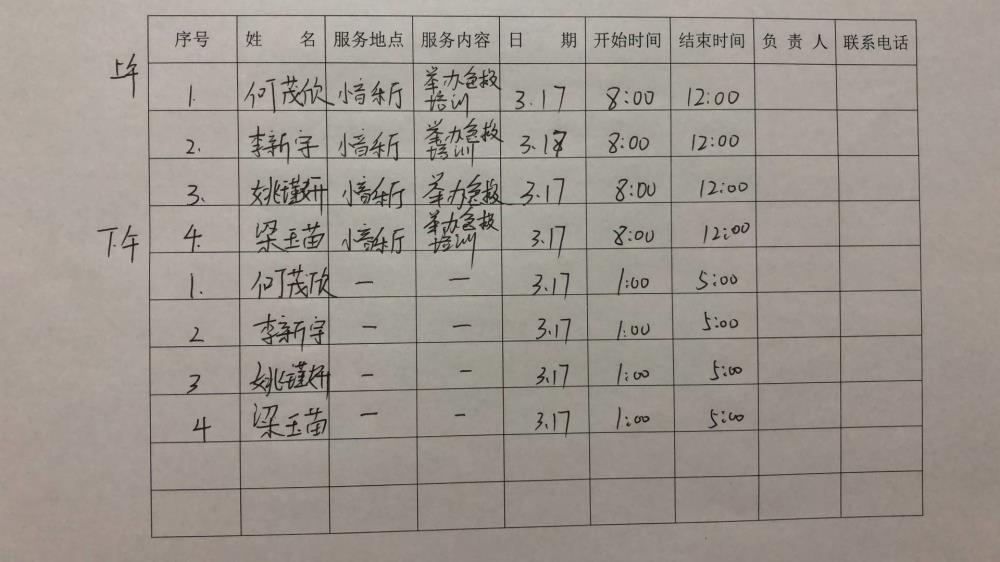 序号 姓 名 服务地点 服务内容 日 期 开始时间 结束时间 负 责 人 联系电话
上午
1. 何茂欣 小音乐厅 举办急救培训 3.17 8:00 12:00
2. 李新宇 小音乐厅 举办急救培训 3.17 8:00 12:00
3. 姚瑾妍 小音乐厅 举办急救 3.17 8:00 12:00
下午
4. 梁玉苗 小音乐厅 举办急救培训 3.17 8:00 12:00
1. 何茂欣 — — 3.17 1:00 5:00
2 李新宇 — — 3.17 1:00 5:00
3 姚瑾妍 — — 3.17 1:00 5:00
4 梁玉苗 — — 3.17 1:00 5:00